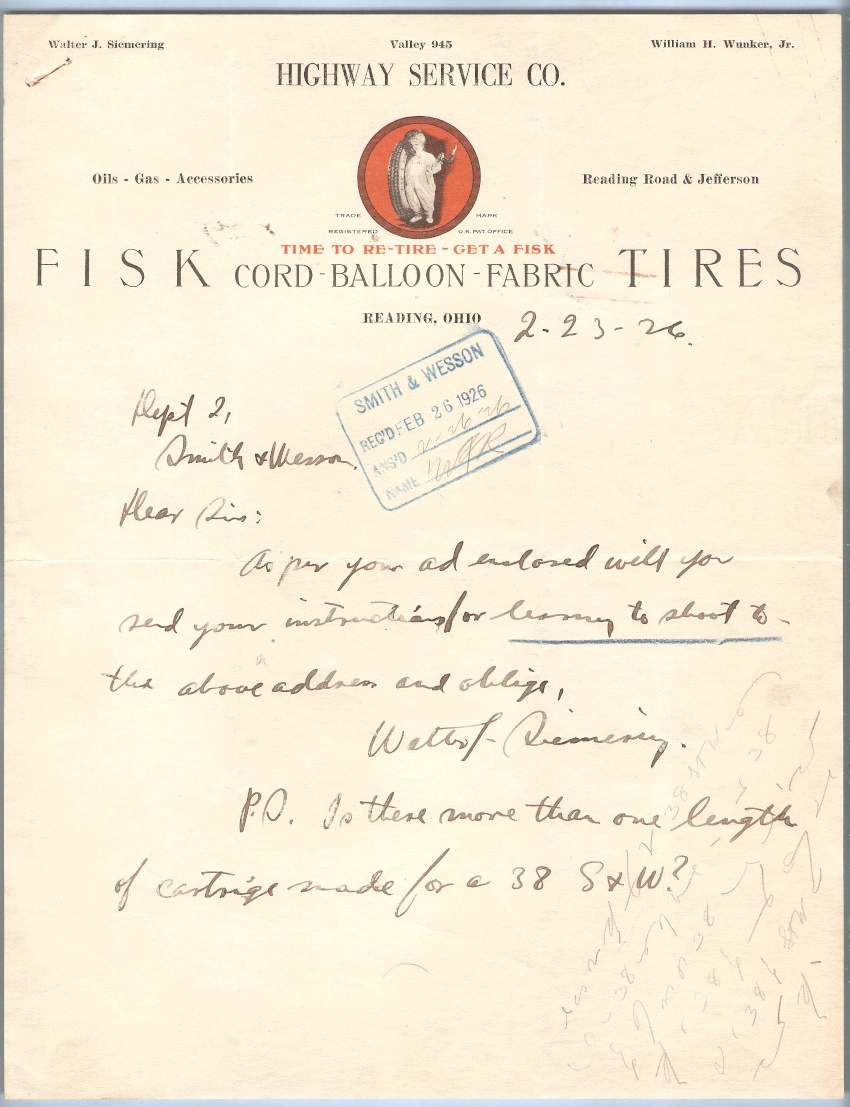 Walter J. Siemering Valley 945 William H. Wunker, Jr.
HIGHWAY SERVICE CO.
Oils - Gas - Accessories Reading Road & Jefferson
TRADE MARK
REGISTERED U.S. PAT. OFFICE
TIME TO RE-TIRE - GET A FISK
FISK CORD - BALLOON - FABRIC TIRES
READING, OHIO 2-23-26.
SMITH & WESSON
REC'D FEB 26 1926
ANS'D 2-26-26
NAME
Dept 2,
Smith & Wesson,
Dear Sirs:
As per your ad enclosed will you
send your instructions for learning to shoot to
the above address and oblige,
Walter J. Siemering.
P.S. Is there more than one length
of cartrige made for a 38 S & W?